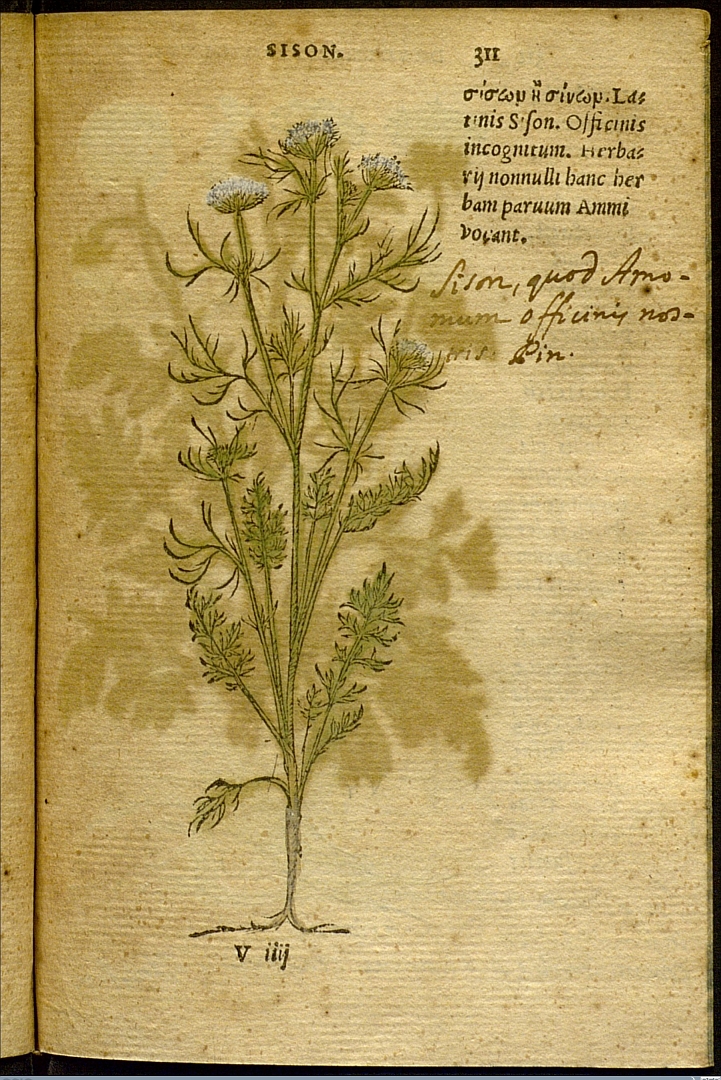 SISON.
311
σίσωρ ἢ σίνωρ. La=
tinis Sison. Officinis
incognitum. Herba=
rij nonnulli hanc her
bam paruum Ammi
vocant.
Sison, quod Amo-
mum officinis nos-
tris. Pin.
V iiij